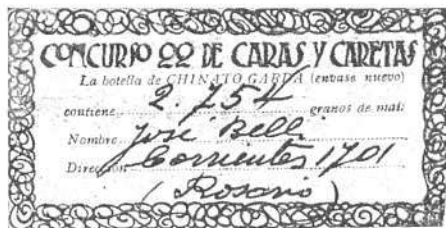 CONCURSO 22 DE CARAS Y CARETAS
La botella de CHINATO GARDA (envase nuevo)
contiene 2.754 granos de maíz
Nombre José Bell
Dirección Corrientes 1701
(Rosario)